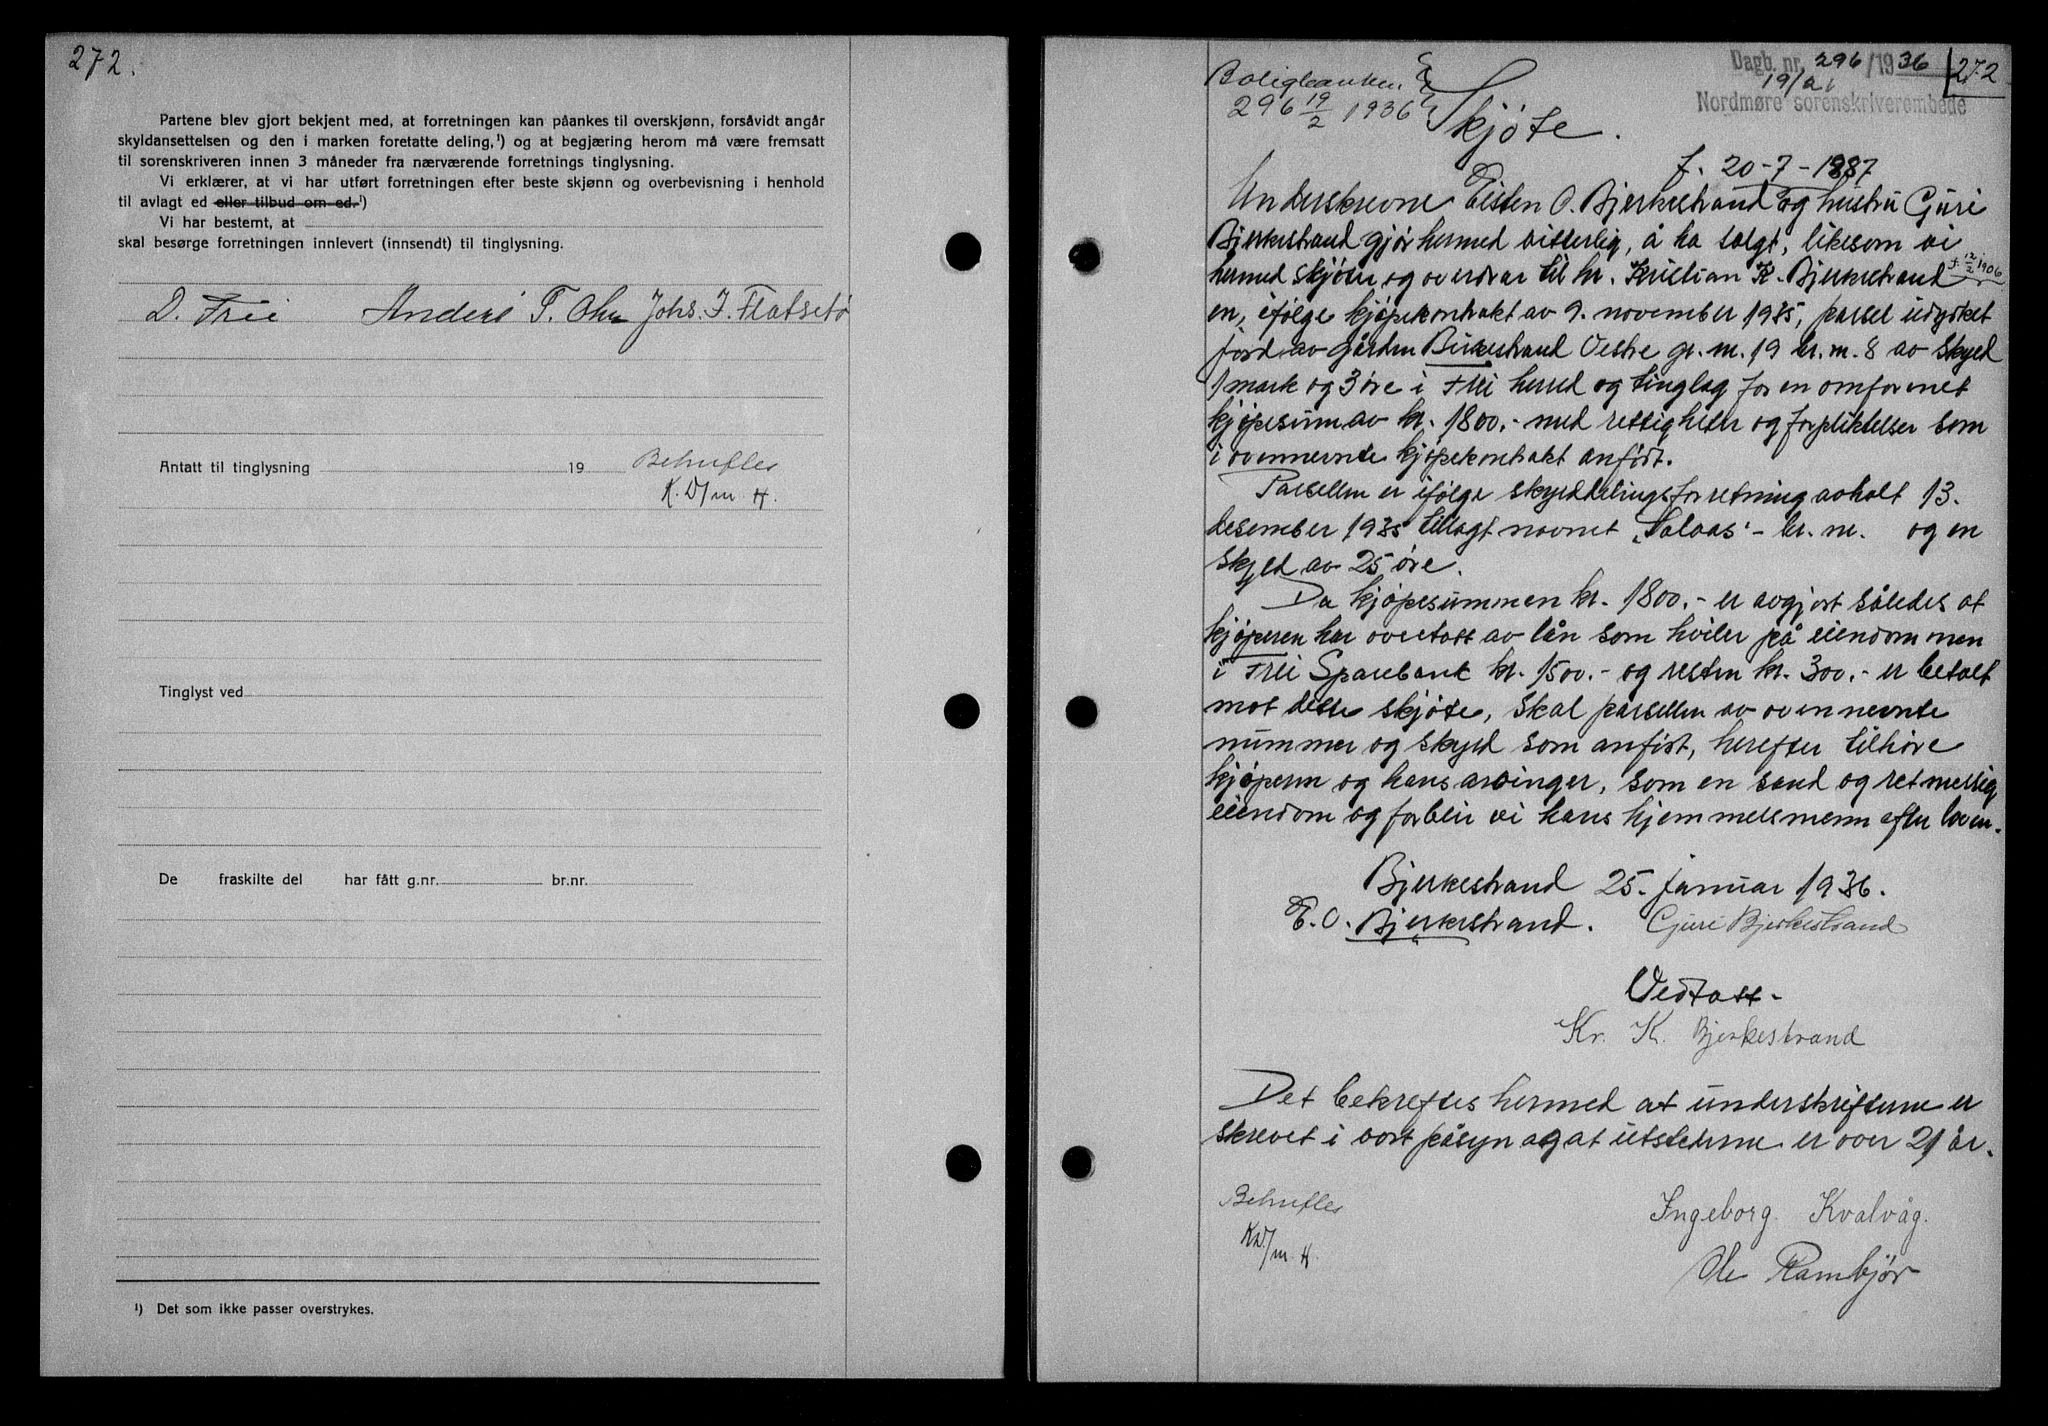 272.
Partene blev gjort bekjent med, at forretningen kan påankes til overskjønn, forsåvidt angår
skyldansettelsen og den i marken foretatte deling,¹) og at begjæring herom må være fremsatt
til sorenskriveren innen 3 måneder fra nærværende forretnings tinglysning.
Vi erklærer, at vi har utført forretningen efter beste skjønn og overbevisning i henhold
til avlagt ed eller tilbud om ed.¹)
Vi har bestemt, at
skal besørge forretningen innlevert (innsendt) til tinglysning.
D. Frei Anders T. Johs. J. Flatsetø
Antatt til tinglysning 19 Bekreftes
K. D/m H.
Tinglyst ved
De fraskilte del har fått g.nr. br.nr.
¹) Det som ikke passer overstrykes.
Dagb. nr. 296/1936 272
19/2
Nordmøre sorenskriverembede
Boligbanken
296 19/2 1936
Skjøte.
f. 20-7-1887
Underskrevne Eisten O. Bjerkestrand og hustru Guri
Bjerkestrand gjør hermed vitterlig, å ha solgt, likesom vi
hermed skjøter og overdrar til hr. Kristian K. Bjerkestrand f. 12/2 1906
en, ifølge kjøpekontrakt av 9. november 1935, parsel udyrket
jord av gården Birkestrand Vestre gr. nr. 19 br. nr. 8 av skyld
1 mark og 3 øre i Frei herred og tinglag for en omforenet
kjøpesum av kr. 1800.- med rettigheter og forpliktelser som
i ovennevnte kjøpekontrakt anført.
Parsellen er ifølge skylddelingsforretning avholt 13.
desember 1935 tillagt navnet "Solaas" - br. nr. og en
skyld av 25 øre.
Da kjøpesummen kr. 1800.- er avgjort således at
kjøperen har overtatt av lån som hviler på eiendommen
i Frei Sparebank kr. 1500.- og resten kr. 300.- er betalt
mot dette skjøte, skal parsellen av ovennevnte
nummer og skyld som anført, herefter tilhøre
kjøperen og hans arvinger, som en sand og retmessig
eiendom og forblir vi hans hjemmelsmenn efter loven.
Bjerkestrand 25. januar 1936.
E. O. Bjerkestrand. Guri Bjerkestrand
Vedtatt.
Kr. K. Bjerkestrand
Det bekreftes hermed at underskrifterne er
skrevet i vort påsyn og at utstederne er over 21 år.
Bekreftes
KD/m H.
Ingeborg Kvalvåg.
Ole Rambjør